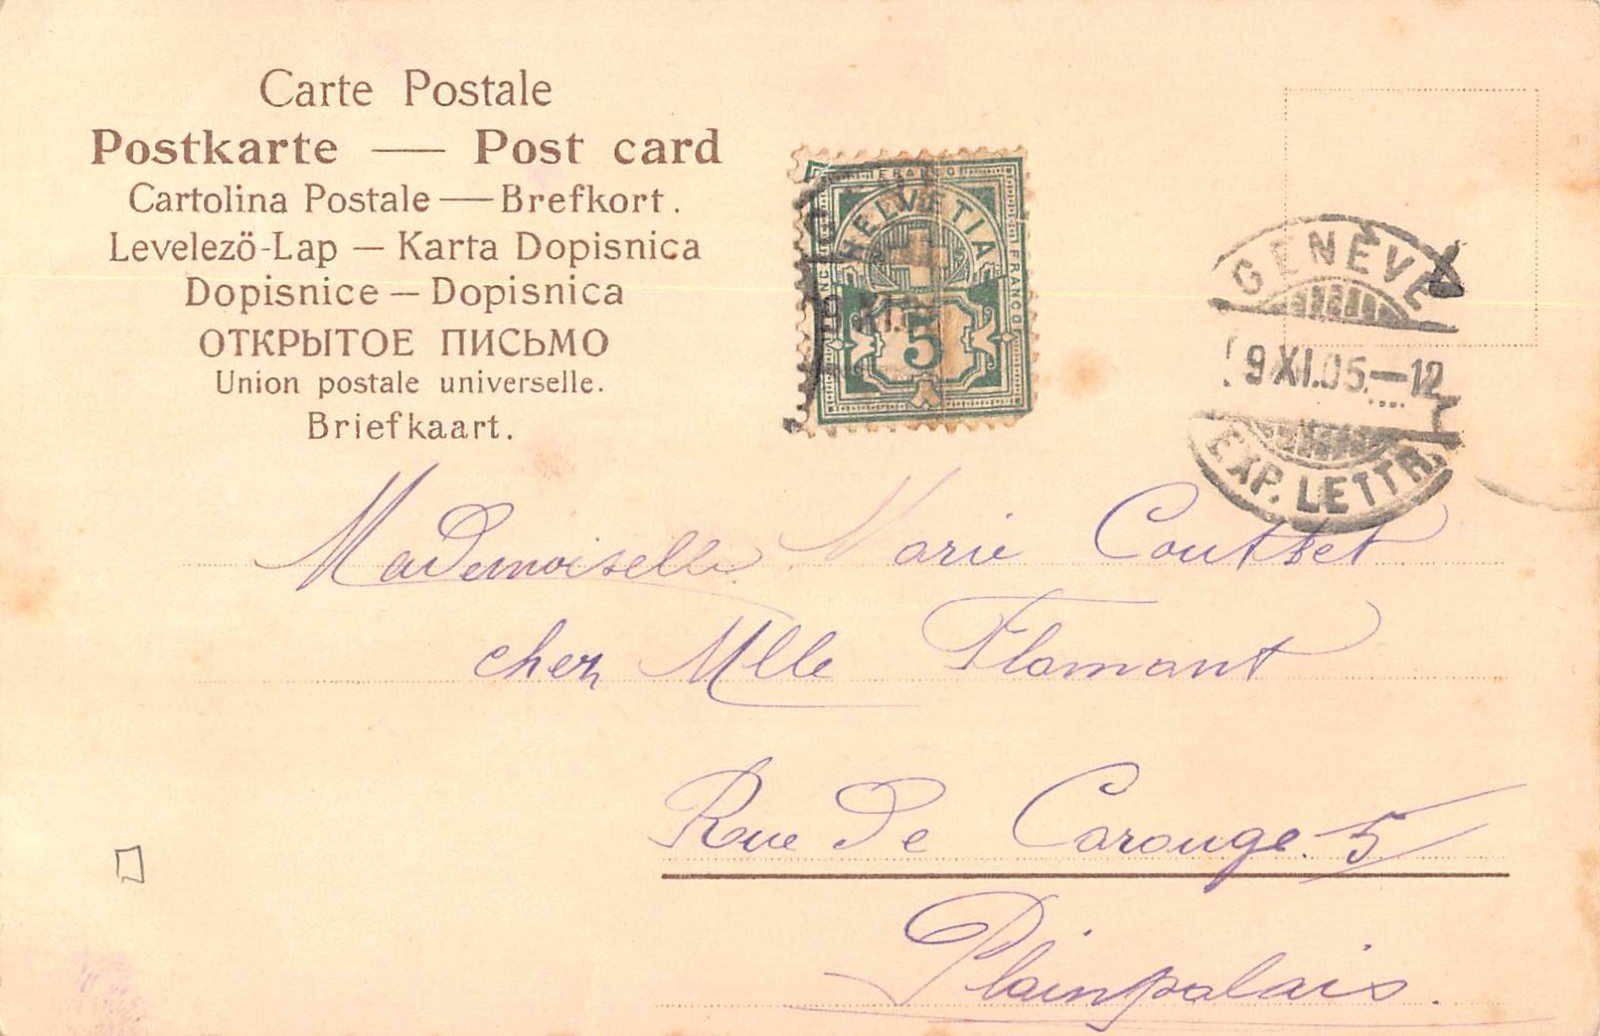 Carte Postale
Postkarte — Post card
Cartolina Postale — Brefkort.
Levelezö-Lap — Karta Dopisnica
Dopisnice — Dopisnica
ОТКРЫТОЕ ПИСЬМО
Union postale universelle.
Briefkaart.
FRANCO
HELVETIA
FRANCO
XI.
5
GENÈVE
9 XI.05.—12
EXP. LETTR.
Mademoiselle Marie Couttet
chez Mlle Flamant
Rue De Carouge. 5
Plainpalais.